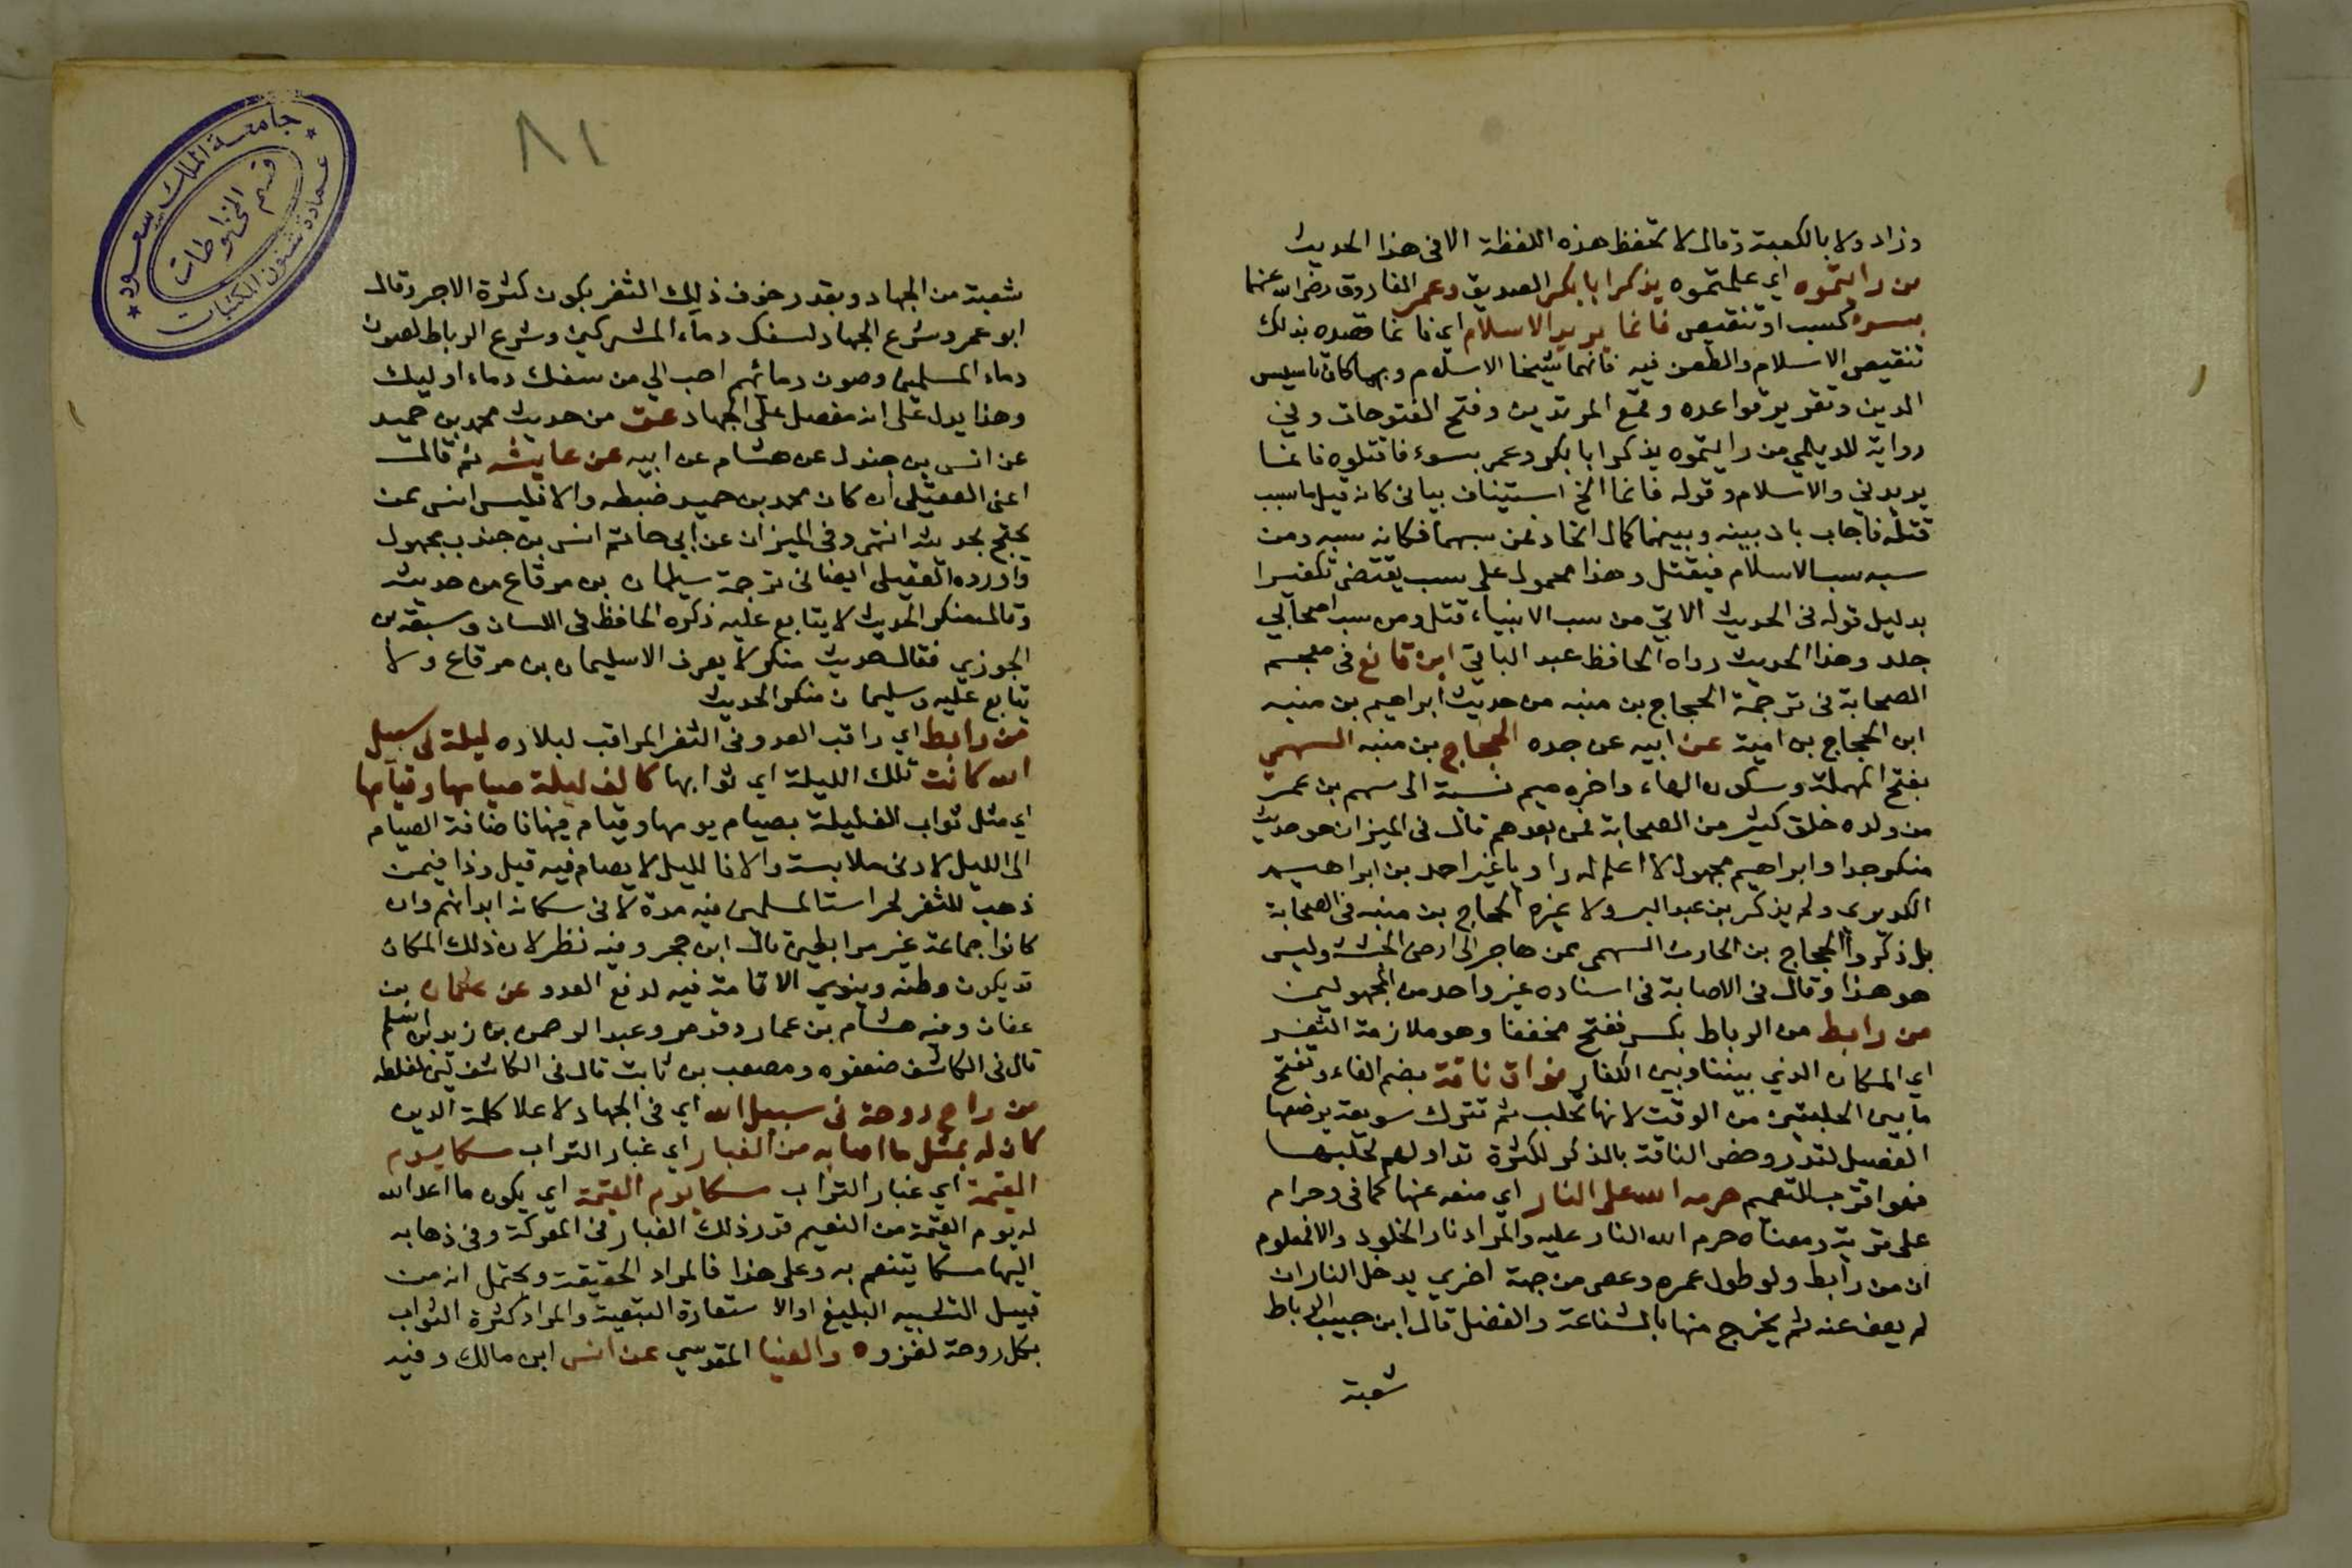 وزاد ولا بالكعبة وقال لا تحفظ هذه اللفظة الا في هذا الحديث
من رايتموه اي علمتموه يذكر ابا بكر الصديق وعمر الفاروق رضي الله عنهما
بسوء كسب او تنقيص فانما يريد الاسلام اي فانما قصده بذلك
تنقيص الاسلام والطعن فيه فانهما شيخا الاسلام وبهما كان تاسيس
الدين وتقرير قواعده وقمع المرتدين وفتح الفتوحات وفي
رواية للديلمي من رايتموه يذكر ابا بكر وعمر بسوء فاقتلوه فانما
يريدني والاسلام وقوله فانما الخ استيناف بياني كانه قيل ما سبب
قتله فاجاب بان بينه وبينهما كمال اتحاد فمن سبهما فكانه سبه ومن
سبه سب الاسلام فيقتل وهذا محمول على سب يقتضى تكفيرا
بدليل قوله في الحديث الاتي من سب الانبياء قتل ومن سب اصحابي
جلد وهذا الحديث رواه الحافظ عبد الباقي ابن قانع في معجم
الصحابة في ترجمة الحجاج بن منبه من حديث ابراهيم بن منبه
ابن الحجاج بن امية عن ابيه عن جده الحجاج بن منبه السهمي
بفتح المهملة وسكون الهاء واخره ميم نسبة الى سهم بن عمرو
من ولده خلق كثير من الصحابة فمن بعدهم قال في الميزان هو حديث
منكر جدا وابراهيم مجهول لا اعلم له راويا غير احمد بن ابراهيم
الكريري ولم يذكر بن عبد البر ولا غيره الحجاج بن منبه في الصحابة
بل ذكروا الحجاج بن الحارث السهمي ممن هاجر الى ارض الحبشة وليس
هو هذا وقال في الاصابة في اسناده غير واحد من المجهولين
من رابط من الرباط بكسر ففتح مخففا وهو ملازمة الثغر
اي المكان الذي بيننا وبين الكفار فواق ناقة بضم الفاء وتفتح
ما بين الحلبتين من الوقت لانها تحلب ثم تترك سويعة يرضعها
الفصيل لتدر وخص الناقة بالذكر لكثرة تداولهم لحلبها
فهو اقرب للتفهيم حرمه الله على النار اي منعه عنها كما في وحرام
على قرية ومعناه حرم الله النار عليه والمراد نار الخلود والا فمعلوم
ان من رابط ولو طول عمره وعصى من جهة اخري يدخل النار ان
لم يعف عنه ثم يخرج منها بالشفاعة والفضل قال ابن حبيب الرباط
شعبة
٨١
شعبة من الجهاد وبقدر خوف ذلك الثغر يكون كثرة الاجر وقال
ابو عمر وشرع الجهاد لسفك دماء المشركين وشرع الرباط لصون
دماء المسلمين وصون دمائهم احب الي من سفك دماء اوليك
وهذا يدل على انه مفضل على الجهاد عق من حديث محمد بن حميد
عن انس بن جندل عن هشام عن ابيه عن عايشة ثم قال
اعنى العقيلي ان كان محمد بن حميد ضبطه والا فليس انس ممن
يحتج بحديثه انتهى وفي الميزان عن ابي حاتم انس بن جندب مجهول
واورده العقيلي ايضا في ترجمة سليمان بن مرقاع من حديثه
وقال منكر الحديث لا يتابع عليه ذكره الحافظ في اللسان وسبقه بن
الجوزي فقال حديث منكر لا يعرف الا سليمان بن مرقاع ولا
تتابع عليه وسليمان منكر الحديث
من رابط اي راقب العدو في الثغر المراقب لبلاده ليلة في سبيل
الله كانت تلك الليلة اي ثوابها كالف ليلة صيامها وقيامها
اي مثل ثواب الف ليلة بصيام يومها وقيام فيها فاضافة الصيام
الى الليل لادنى ملابسة والا فالليل لا يصام فيه قيل وذا فيمن
ذهب للثغر لحراسة المسلمين فيه مدة لا في سكانه ابدا فهم وان
كانوا جماعة غير مرابطين قال ابن حجر وفيه نظر لان ذلك المكان
قد يكون وطنه وينوي الاقامة فيه لدفع العدو عن عثمان بن
عفان وفيه هشام بن عمار وقد مر وعبد الرحمن بن زيد بن اسلم
قال في الكاشف ضعفوه ومصعب بن ثابت قال في الكاشف لين لغلطه
من راح روحة في سبيل الله اي في الجهاد لاعلا كلمة الدين
كان له بمثل ما اصابه من الغبار اي غبار التراب مسكا يوم
القيمة اي غبار التراب مسكا يوم القيمة اي يكون ما اعد الله
له يوم القيمة من النعيم قدر ذلك الغبار في المعركة وفي ذهابه
اليها مسكا يتنعم به وعلى هذا فالمراد الحقيقة ويحتمل انه من
قبيل التشبيه البليغ او الاستعارة التبعية والمراد كثرة الثواب
بكل روحة لغزوه والضيا المقدسي عن انس ابن مالك وفيه
جامعة الملك سعود
عمادة شئون المكتبات
قسم المخطوطات